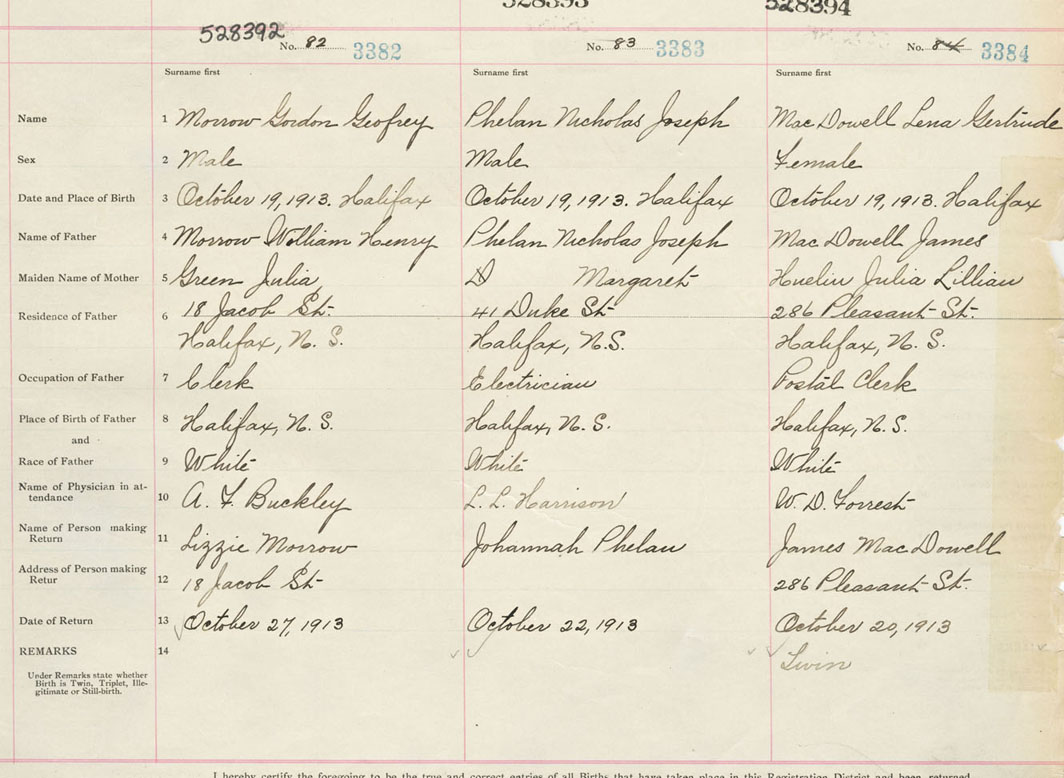 528392 528393 528394
No. 82 3382 No. 83 3383 No. 84 3384
Surname first Surname first Surname first
Name 1 Morrow Gordon Geofrey Phelan Nicholas Joseph Mac Dowell Lena Gertrude
Sex 2 Male Male Female
Date and Place of Birth 3 October 19, 1913. Halifax October 19, 1913. Halifax October 19, 1913. Halifax
Name of Father 4 Morrow William Henry Phelan Nicholas Joseph Mac Dowell James
Maiden Name of Mother 5 Green Julia Margaret Huelin Julia Lillian
Residence of Father 6 18 Jacob St. 41 Duke St 286 Pleasant St.
Halifax, N. S. Halifax, N.S. Halifax, N. S.
Occupation of Father 7 Clerk Electrician Postal Clerk
Place of Birth of Father 8 Halifax, N. S. Halifax, N. S. Halifax, N. S.
and
Race of Father 9 White White White
Name of Physician in at-
tendance 10 A. F. Buckley L. L. Harrison W. D. Forrest
Name of Person making
Return 11 Lizzie Morrow Johannah Phelan James Mac Dowell
Address of Person making
Retur 12 18 Jacob St 286 Pleasant St.
Date of Return 13 October 27, 1913 October 22, 1913 October 20, 1913
REMARKS 14 Twin
Under Remarks state whether
Birth is Twin, Triplet, Ille-
gitimate or Still-birth.
I hereby certify the foregoing to be the true and correct entries of all Births that have taken place in this Registration District and been returned